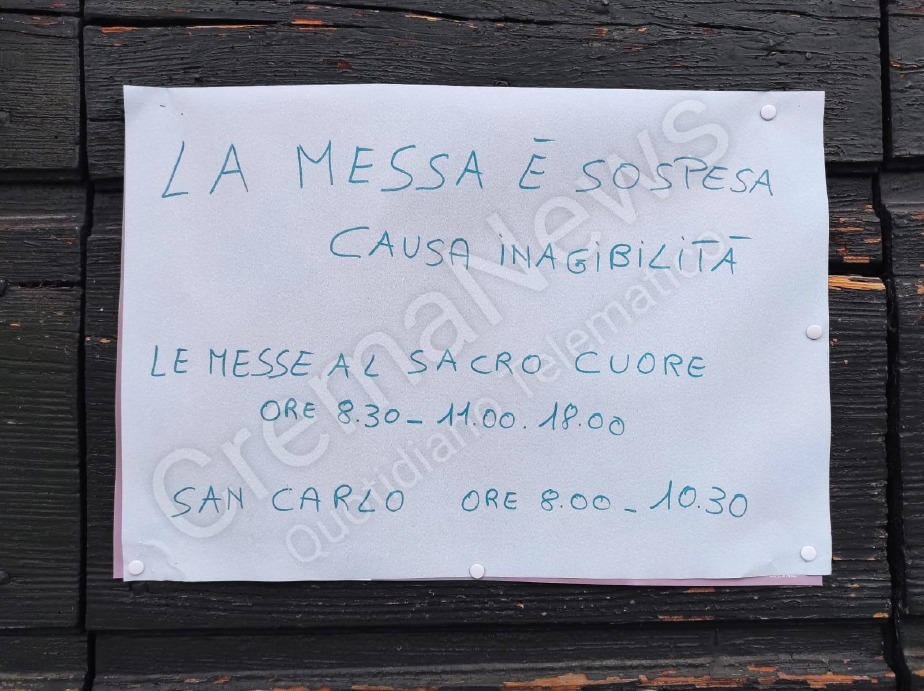 LA MESSA È SOSPESA
CAUSA INAGIBILITÀ
LE MESSE AL SACRO CUORE
ORE 8.30 - 11.00. 18.00
SAN CARLO ORE 8.00 - 10.30
CremaNews
Quotidiano Telematico